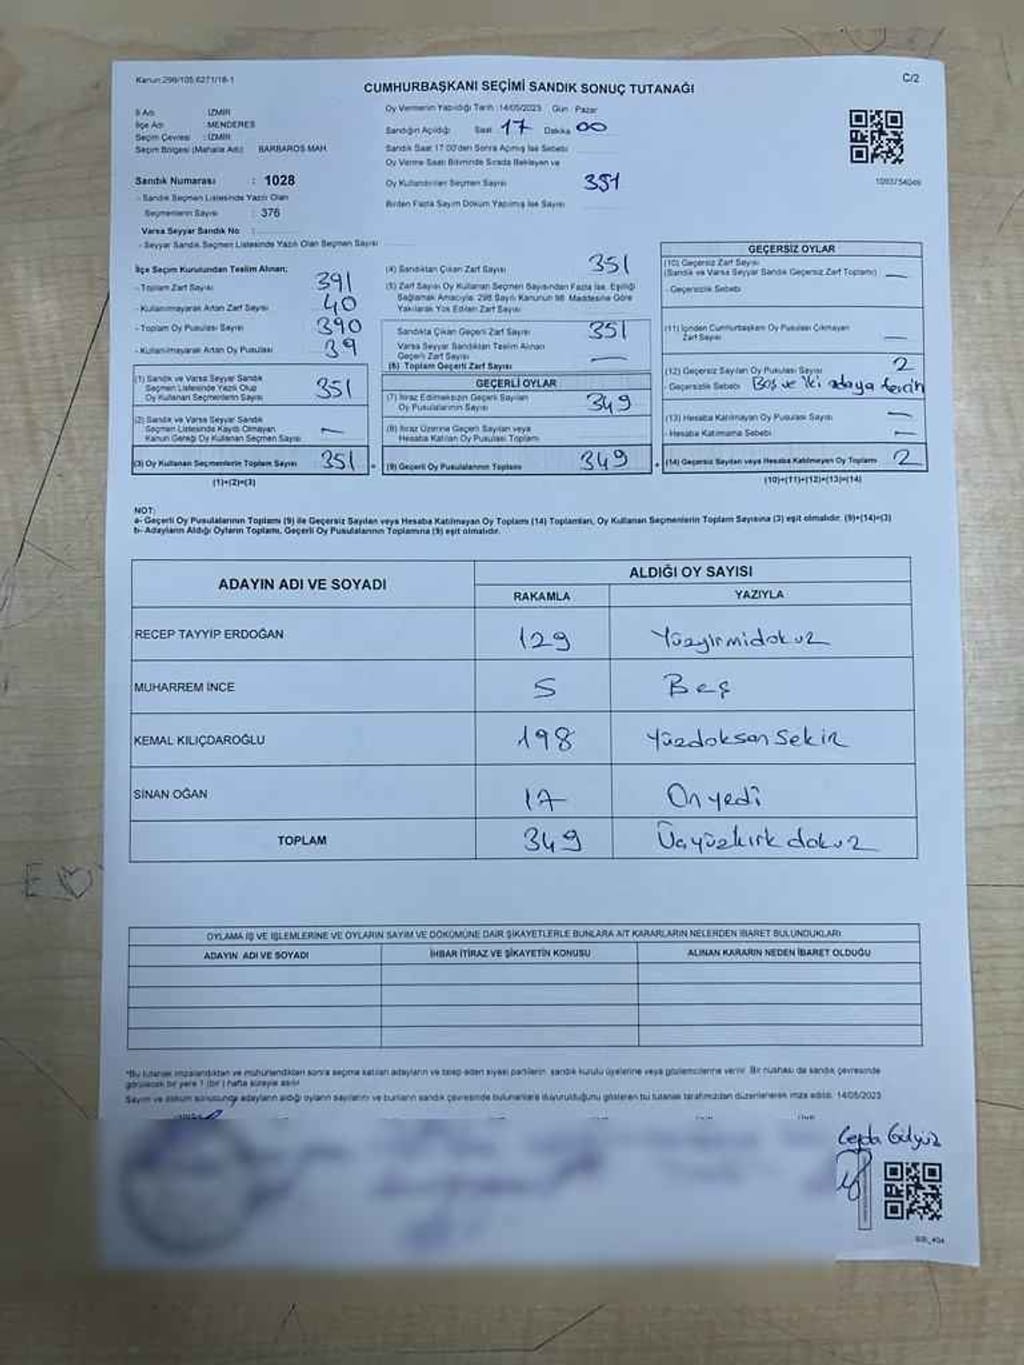 Kanun:298/105 6271/18-1
C/2
CUMHURBAŞKANI SEÇİMİ SANDIK SONUÇ TUTANAĞI
İl Adı : İZMİR
İlçe Adı : MENDERES
Seçim Çevresi : İZMİR
Seçim Bölgesi (Mahalle Adı) BARBAROS MAH.
Sandık Numarası : 1028
- Sandık Seçmen Listesinde Yazılı Olan
Seçmenlerin Sayısı : 376
Varsa Seyyar Sandık No :
- Seyyar Sandık Seçmen Listesinde Yazılı Olan Seçmen Sayısı
Oy Vermenin Yapıldığı Tarih : 14/05/2023 Gün : Pazar
Sandığın Açıldığı Saat 17 Dakika 00
Sandık Saat 17:00'den Sonra Açılmış İse Sebebi
Oy Verme Saati Bitiminde Sırada Bekleyen ve
Oy Kullandırılan Seçmen Sayısı 351
Birden Fazla Sayım Döküm Yapılmış İse Sayısı
1093754049
İlçe Seçim Kurulundan Teslim Alınan;
- Toplam Zarf Sayısı 391
- Kullanılmayarak Artan Zarf Sayısı 40
- Toplam Oy Pusulası Sayısı 390
- Kullanılmayarak Artan Oy Pusulası 39
(1) Sandık ve Varsa Seyyar Sandık
Seçmen Listesinde Yazılı Olup
Oy Kullanan Seçmenlerin Sayısı 351
(2) Sandık ve Varsa Seyyar Sandık
Seçmen Listesinde Kayıtlı Olmayan
Kanun Gereği Oy Kullanan Seçmen Sayısı —
(3) Oy Kullanan Seçmenlerin Toplam Sayısı 351
(1)+(2)=(3)
(4) Sandıktan Çıkan Zarf Sayısı 351
(5) Zarf Sayısı Oy Kullanan Seçmen Sayısından Fazla İse, Eşitliği
Sağlamak Amacıyla, 298 Sayılı Kanunun 98. Maddesine Göre
Yakılarak Yok Edilen Zarf Sayısı
Sandıkta Çıkan Geçerli Zarf Sayısı 351
Varsa Seyyar Sandıktan Teslim Alınan
Geçerli Zarf Sayısı —
(6) Toplam Geçerli Zarf Sayısı
GEÇERLİ OYLAR
(7) İtiraz Edilmeksizin Geçerli Sayılan
Oy Pusulalarının Sayısı 349
(8) İtiraz Üzerine Geçerli Sayılan veya
Hesaba Katılan Oy Pusulası Toplamı
(9) Geçerli Oy Pusulalarının Toplamı 349
GEÇERSİZ OYLAR
(10) Geçersiz Zarf Sayısı
(Sandık ve Varsa Seyyar Sandık Geçersiz Zarf Toplamı) —
- Geçersizlik Sebebi
(11) İçinden Cumhurbaşkanı Oy Pusulası Çıkmayan
Zarf Sayısı —
(12) Geçersiz Sayılan Oy Pusulası Sayısı 2
- Geçersizlik Sebebi Boş ve iki adaya tercih
(13) Hesaba Katılmayan Oy Pusulası Sayısı —
- Hesaba Katılmama Sebebi —
(14) Geçersiz Sayılan veya Hesaba Katılmayan Oy Toplamı 2
(10)+(11)+(12)+(13)=(14)
NOT:
a- Geçerli Oy Pusulalarının Toplamı (9) ile Geçersiz Sayılan veya Hesaba Katılmayan Oy Toplamı (14) Toplamları, Oy Kullanan Seçmenlerin Toplam Sayısına (3) eşit olmalıdır. (9)+(14)=(3)
b- Adayların Aldığı Oyların Toplamı, Geçerli Oy Pusulalarının Toplamına (9) eşit olmalıdır.
ADAYIN ADI VE SOYADI
ALDIĞI OY SAYISI
RAKAMLA YAZIYLA
RECEP TAYYİP ERDOĞAN 129 Yüzyirmidokuz
MUHARREM İNCE 5 Beş
KEMAL KILIÇDAROĞLU 198 Yüzdoksansekiz
SİNAN OĞAN 17 Onyedi
TOPLAM 349 Üçyüzkırkdokuz
OYLAMA İŞ VE İŞLEMLERİNE VE OYLARIN SAYIM VE DÖKÜMÜNE DAİR ŞİKAYETLERLE BUNLARA AİT KARARLARIN NELERDEN İBARET BULUNDUKLARI
ADAYIN ADI VE SOYADI İHBAR İTİRAZ VE ŞİKAYETİN KONUSU ALINAN KARARIN NEDEN İBARET OLDUĞU
*Bu tutanak imzalandıktan ve mühürlendikten sonra seçime katılan adayların ve talep eden siyasi partilerin, sandık kurulu üyelerine veya gözlemcilerine verilir. Bir nüshası da sandık çevresinde
görülecek bir yere 1 (bir) hafta süreyle asılır.
Sayım ve döküm sonucunda adayların aldığı oyların sayılarını ve bunların sandık çevresinde bulunanlara duyurulduğunu gösteren bu tutanak tarafımızdan düzenlenerek imza edildi. 14/05/2023